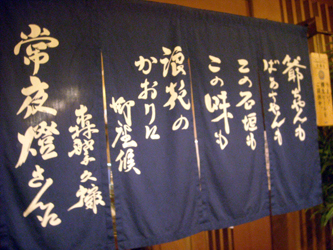 爺ちゃんも
ばあちゃんも
この石垣も
この味も
浪花の
かおりに
御座候
森繁久彌
常夜燈さん江